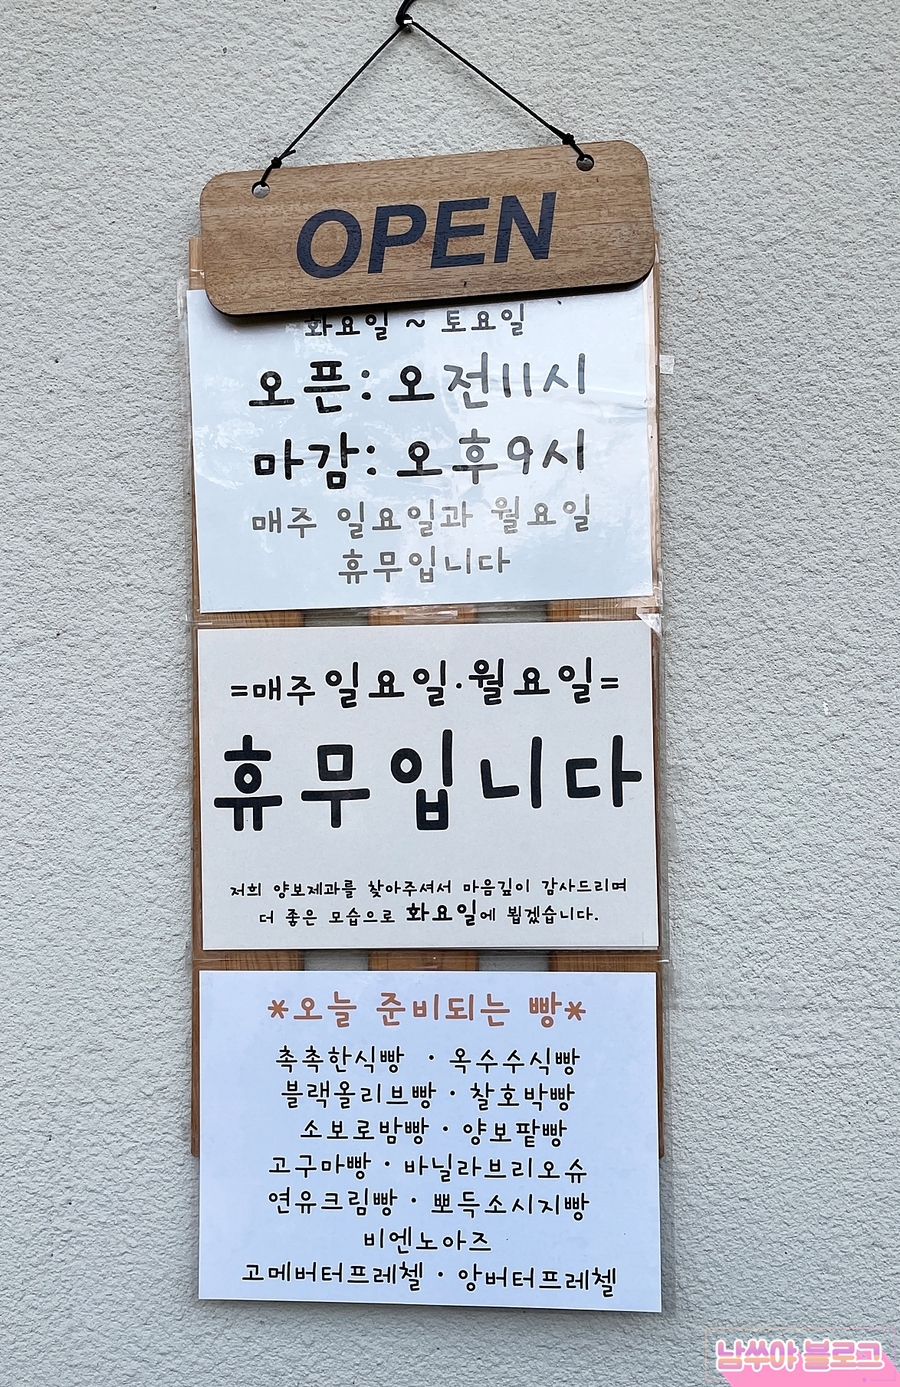 OPEN
화요일 ~ 토요일
오픈: 오전11시
마감: 오후9시
매주 일요일과 월요일
휴무입니다
=매주 일요일·월요일=
휴무입니다
저희 양보제과를 찾아주셔서 마음깊이 감사드리며
더 좋은 모습으로 화요일에 뵙겠습니다.
*오늘 준비되는 빵*
촉촉한식빵 · 옥수수식빵
블랙올리브빵 · 찰호박빵
소보로밤빵 · 양보팥빵
고구마빵 · 바닐라브리오슈
연유크림빵 · 뽀득소시지빵
비엔노아즈
고메버터프레첼 · 앙버터프레첼
남쑤야 블로그